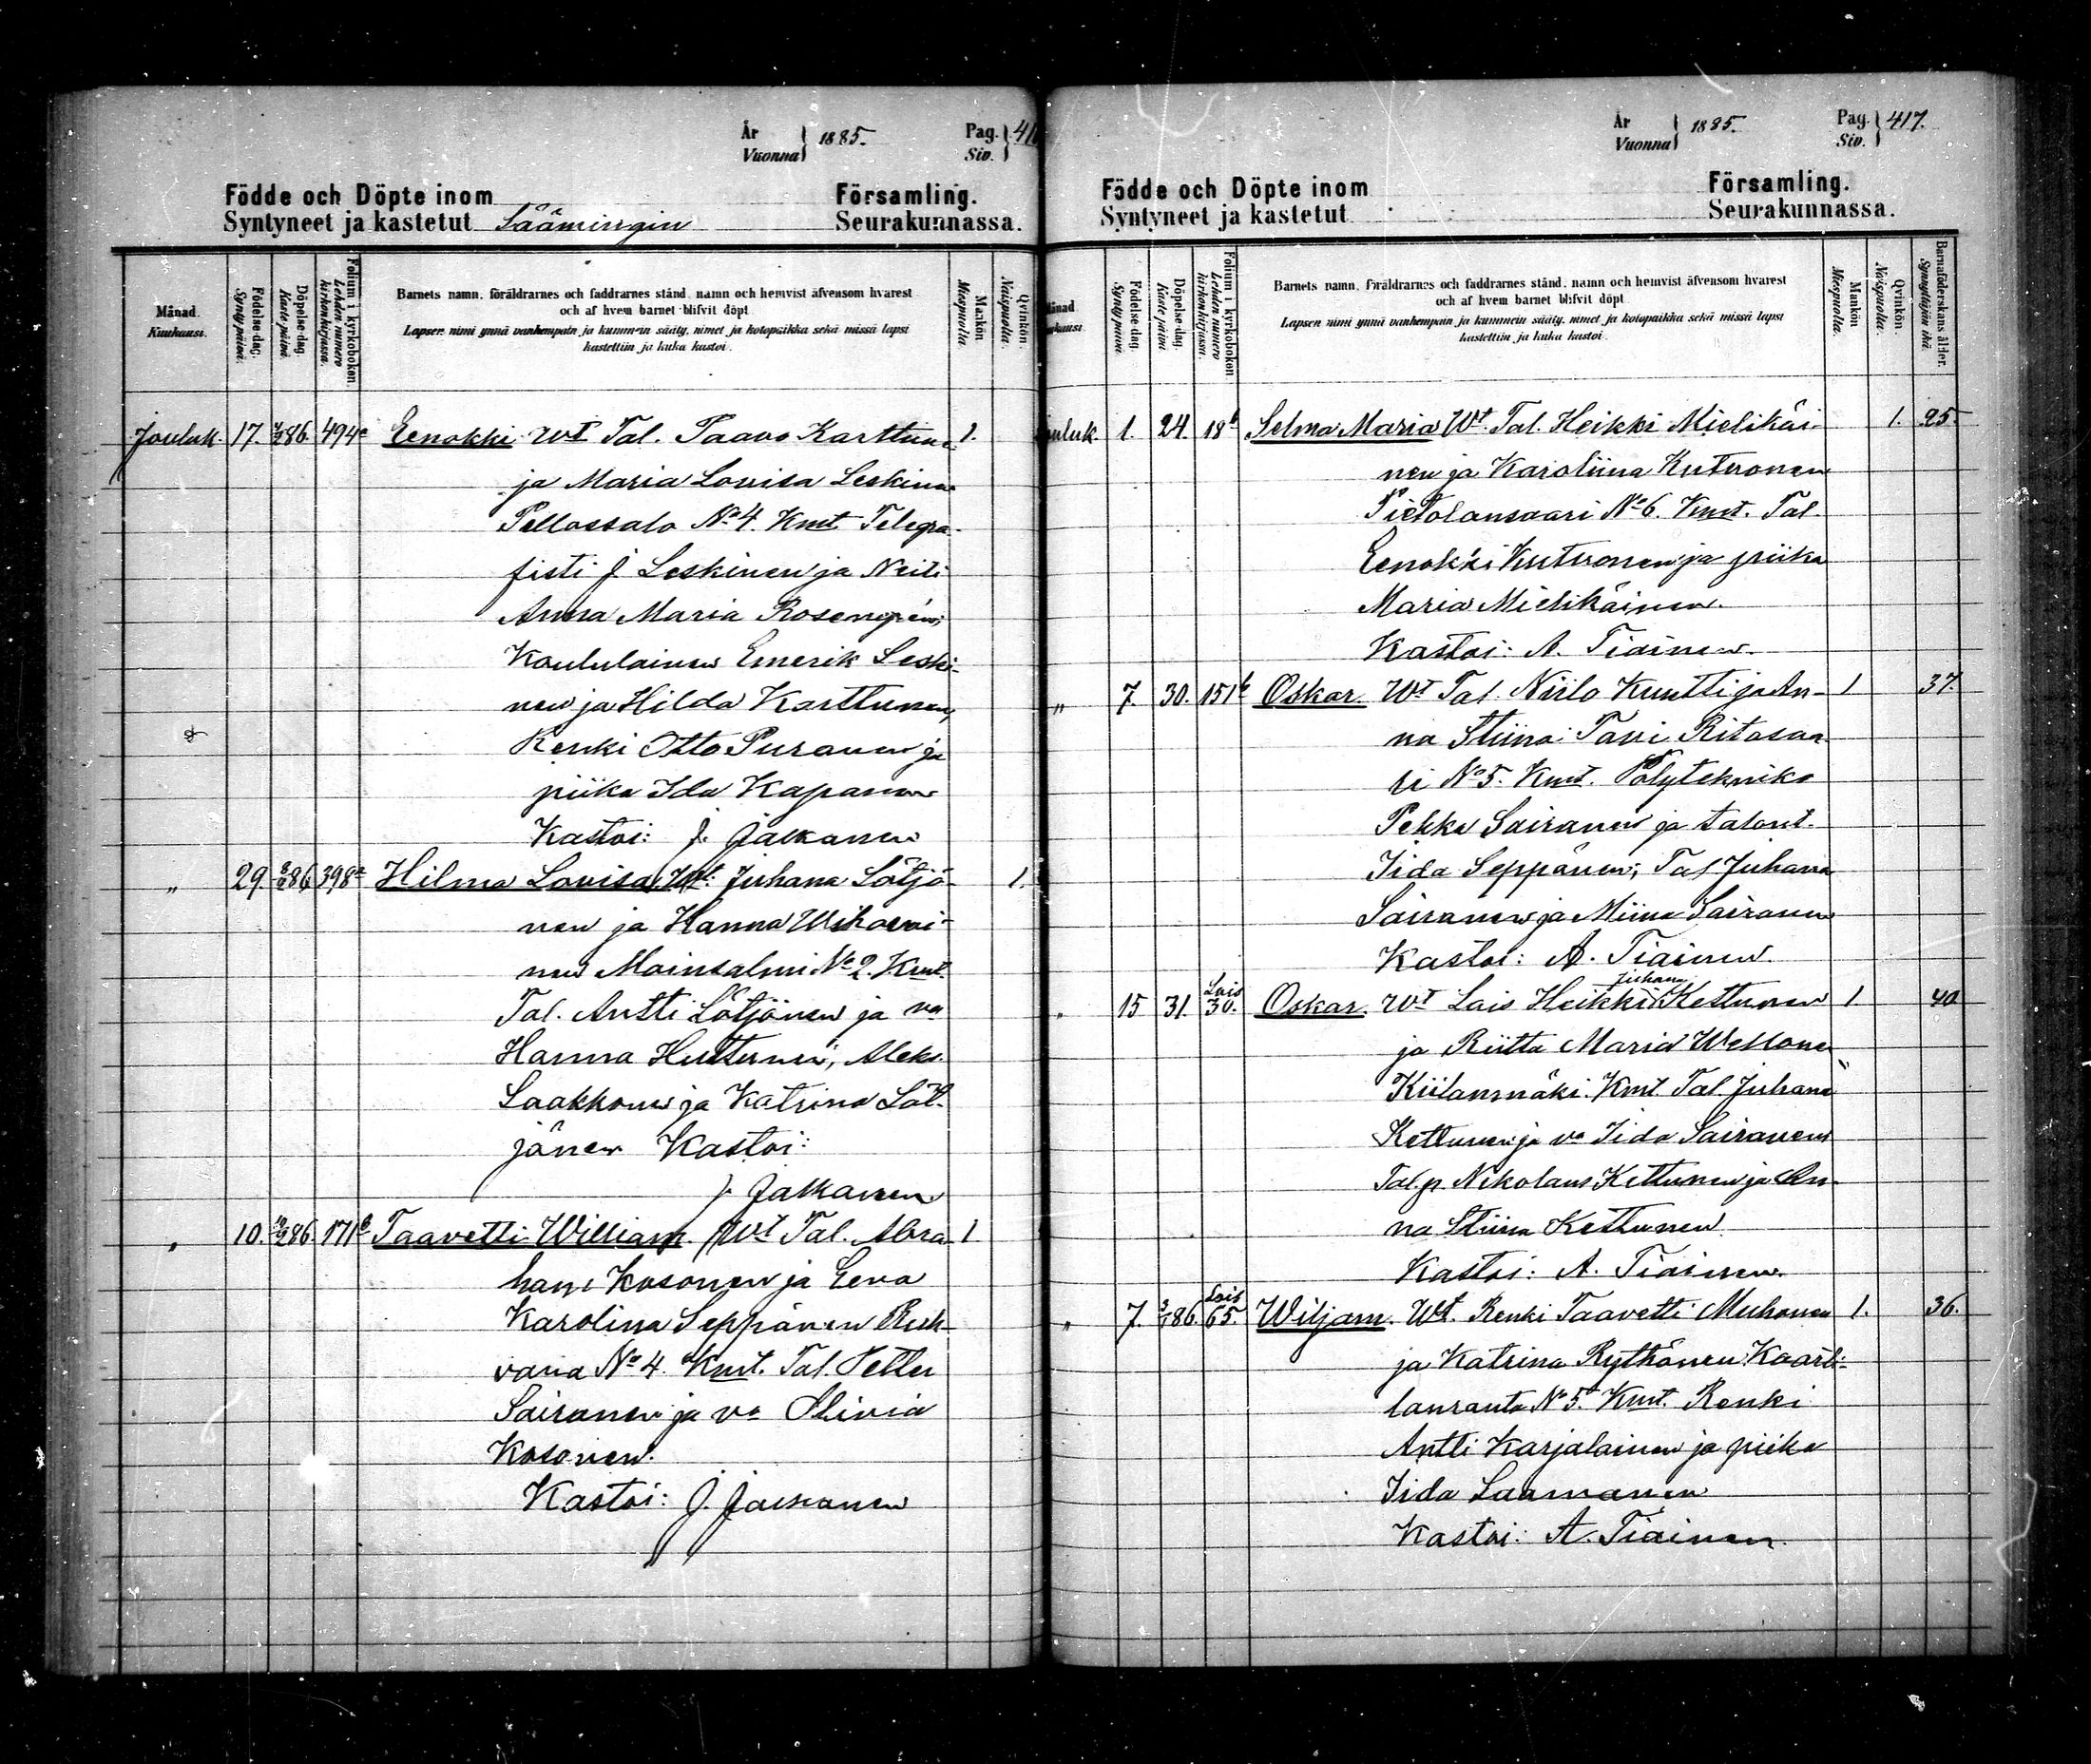 År
Vuonna } 1885.
Pag.
Siv. } 416
Födde och Döpte inom Församling.
Syntyneet ja kastetut Säämingin Seurakunnassa.
Månad. Kuukausi.
Födelse-dag. Synty päivä.
Döpelse-dag. Kaste päivä.
Folium i kyrkoboken. Lehden numero kirkonkirjassa.
Barnets namn, föräldrarnes och faddrarnes stånd, namn och hemvist äfvensom hvarest
och af hvem barnet blifvit döpt.
Lapsen nimi ynnä vanhempain ja kummein sääty, nimet ja kotopaikka sekä missä lapsi
kastettiin ja kuka kastoi.
Mankön. Miespuolia.
Qvinkön. Naispuolia.
Jouluk. 17. 7/2 86. 494a Eenokki Wt Tal. Paavo Karttunen 1.
ja Maria Lovisa Leskinen
Pellossalo No 4. Kmt Telegra-
fisti J. Leskinen ja Neiti
Anna Maria Rosengrén;
Koululainen Emerik Leski-
nen ja Hilda Karttunen,
Renki Otto Puranen ja
piika Ida Kapanen
Kastoi: J. Jalkanen
" 29. 86. 398a Hilma Lovisa, Wt: Juhana Lötjö- 1.
nen ja Hanna Wihavai-
nen Moinsalmi No 2. Kmt.
Tal. Antti Lötjönen ja va
Hanna Huttunen, Aleks.
Laakkonen ja Katrina Löt-
jönen Kastoi:
J. Jalkanen
" 10. 86. 171b Taavetti William. Wt Tal. Abra- 1
ham Kosonen ja Eeva
Karolina Seppänen Ruh-
vana No 4. Kmt. Tal. Petter
Sairanen ja va Olivia
Kosonen.
Kastoi: J. Jalkanen
År
Vuonna } 1885.
Pag.
Siv. } 417.
Födde och Döpte inom Församling.
Syntyneet ja kastetut Seurakunnassa.
Månad. Kuukausi.
Födelse-dag. Synty päivä.
Döpelse-dag. Kaste päivä.
Folium i kyrkoboken. Lehden numero kirkonkirjassa.
Barnets namn, föräldrarnes och faddrarnes stånd, namn och hemvist äfvensom hvarest
och af hvem barnet blifvit döpt.
Lapsen nimi ynnä vanhempain ja kummein sääty, nimet ja kotopaikka sekä missä lapsi
kastettiin ja kuka kastoi.
Mankön. Miespuolia.
Qvinkön. Naispuolia.
Barnaföderskans ålder. Synnyttäjän ikä.
Jouluk. 1. 24. 18b Selma Maria Wt. Tal. Heikki Mielikäi- 1. 25.
nen ja Karoliina Kutvonen
Pietolansaari No 6. Kmt. Tal.
Eenokki Kutvonen ja piika
Maria Mielikäinen.
Kastoi: A. Tiainen.
" 7. 30. 151b Oskar. Wt Tal. Niilo Kuutti ja An- 1 37.
na Stiina Tavi Ritosaa-
ri No 5. Kmt. Polytekniko
Pekka Sairanen ja talont.
Iida Seppänen; Tal. Juhana
Sairanen ja Miina Sairanen
Kastoi: A. Tiainen.
" 15 31. Lois 30. Oskar. Wt Lois Heikki Juhana Kettunen 1 40
ja Riitta Maria Wellonen
Kiilanmäki. Kmt. Tal. Juhana
Kettunen ja va Iida Sairanen
Tal.p. Nikolaus Kettunen ja An-
na Stiina Kettunen
Kastoi: A. Tiainen.
" 7. 3/1 86. Lois 65. Wiljam. Wt. Renki Taavetti Muhonen 1. 36.
ja Katrina Rythönen Kaarti-
lanranta No 5. Kmt. Renki
Antti Karjalainen ja piika
Iida Laamanen
Kastoi: A. Tiainen.